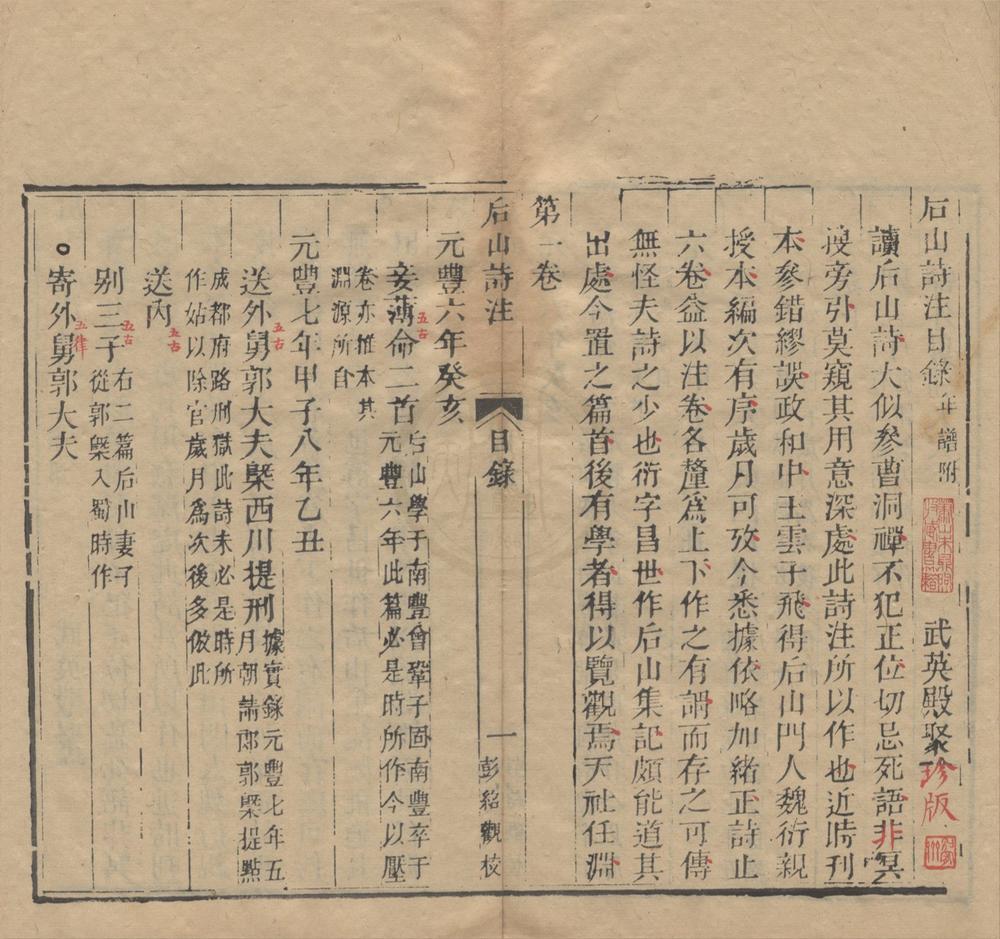 后山詩注目錄 年譜附 武英殿聚珍版
讀后山詩大似參曹洞禪不犯正位切忌死語非冥
搜旁引莫窺其用意深處此詩注所以作也近時刊
本參錯繆誤政和中王雲子飛得后山門人魏衍親
授本編次有序歲月可攷今悉據依略加緒正詩止
六卷益以注卷各釐爲上下作之有謂而存之可傳
無怪夫詩之少也衍字昌世作后山集記頗能道其
出處今置之篇首後有學者得以覽觀焉天社任淵
第一卷
后山詩注 目錄 一 彭紹觀校
元豐六年癸亥
妾薄命二首 五古 后山學于南豐曾鞏子固南豐卒于
元豐六年此篇必是時所作今以壓
卷亦推本其
淵源所自
元豐七年甲子八年乙丑
送外舅郭大夫槩西川提刑 五古 據實錄元豐七年五
月朝請郎郭槩提點
成都府路刑獄此詩未必是時所
作姑以除官歲月爲次後多倣此
送內 五古
別三子 五古 右二篇后山妻子
從郭槩入蜀時作
○寄外舅郭大夫 五律